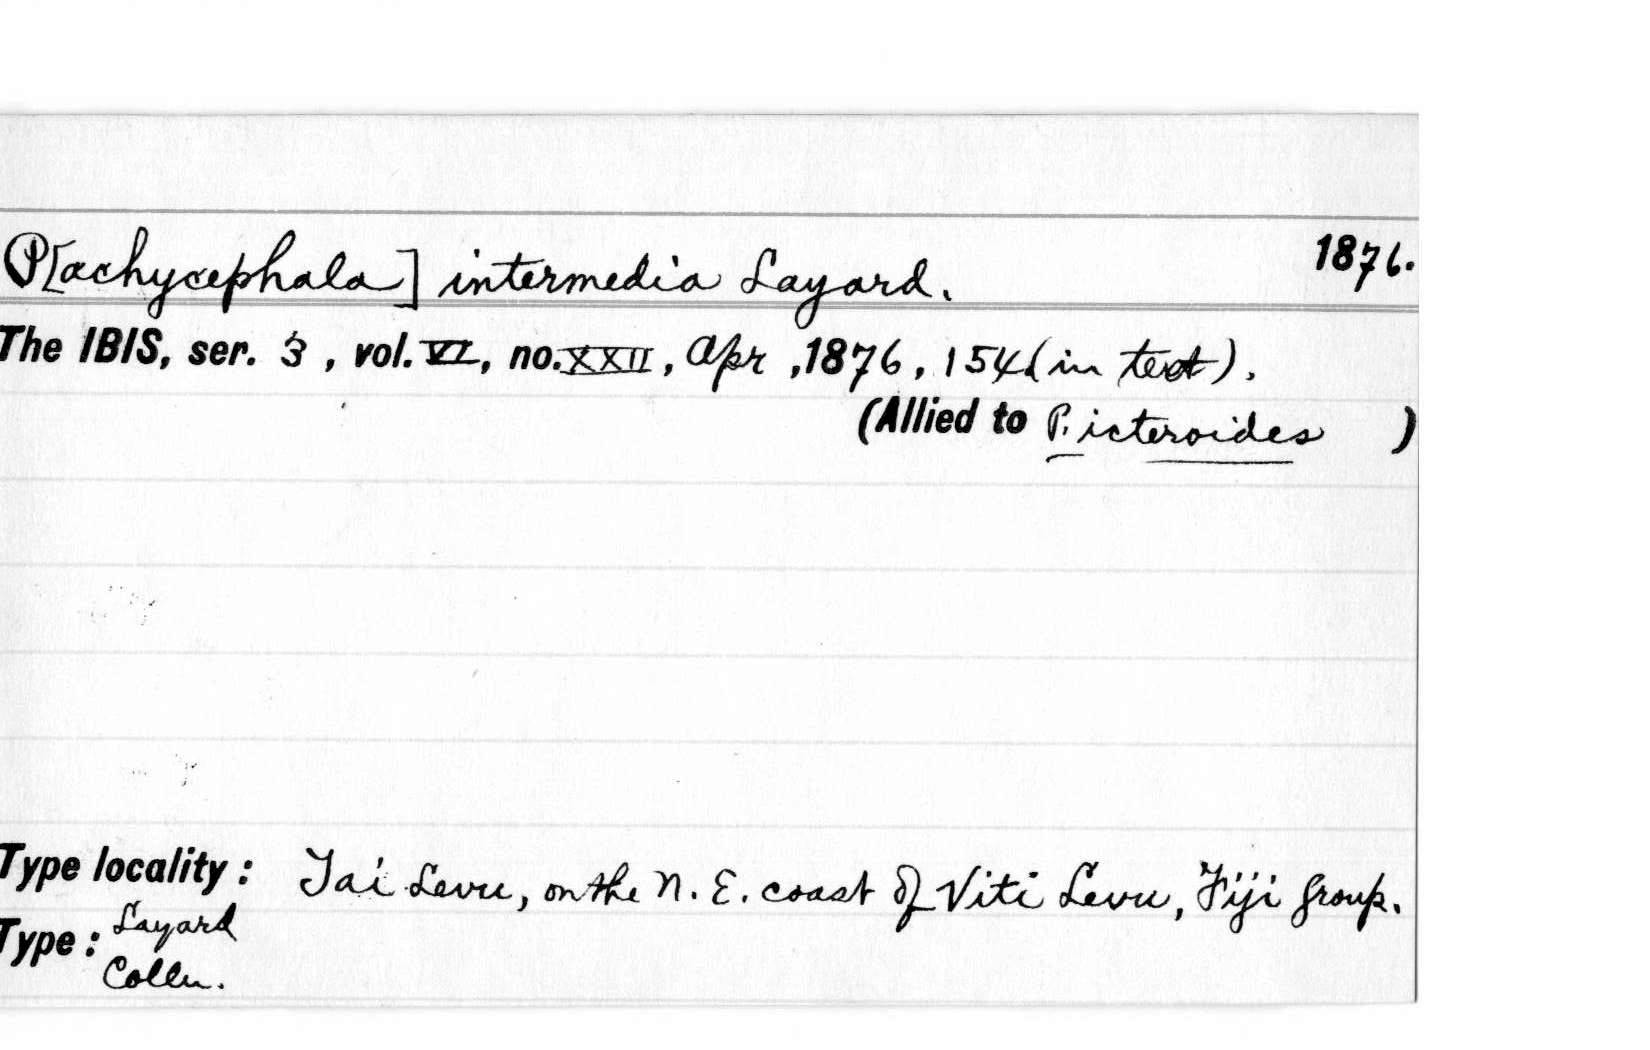 P[achycephala] intermedia Layard. 1876.
The IBIS, ser. 3, vol. VI, no. XXII, Apr, 1876, 154 (in text).
(Allied to P. icteroides )
Type locality: Tai Levu, on the N. E. coast of Viti Levu, Fiji group.
Type: Layard
Colln.